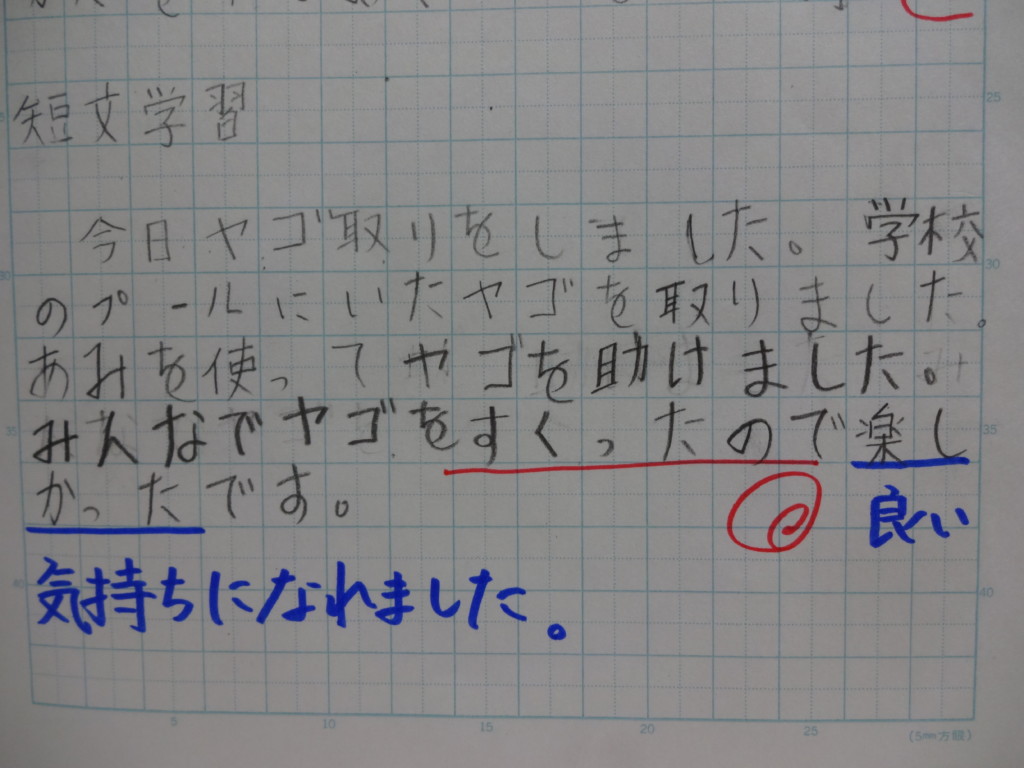 短文学習
25
今日ヤゴ取りをしました。学校
30
のプールにいたヤゴを取りました。
あみを使ってヤゴを助けました。
35
みんなでヤゴをすくったので楽し
35
かったです。
良い
気持ちになれました。
40
40
5 10 15 20 25
(5mm方眼)